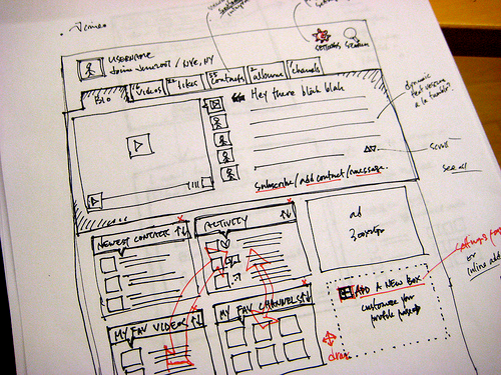 Vimeo
USERNAME
/ NYC, NY
SETTINGS SEARCH
BIO
videos
likes
contacts
albums
channels
Hey there blah blah
dynamic
text resize
a la tumblr
scroll
see all
Subscribe/add contact/message.
NEWEST CONTACTS
ACTIVITY
ad
300x250
settings
or
inline add
ADD A NEW BOX
customize your
profile
MY FAV VIDEOS
MY FAV CHANNELS
drag